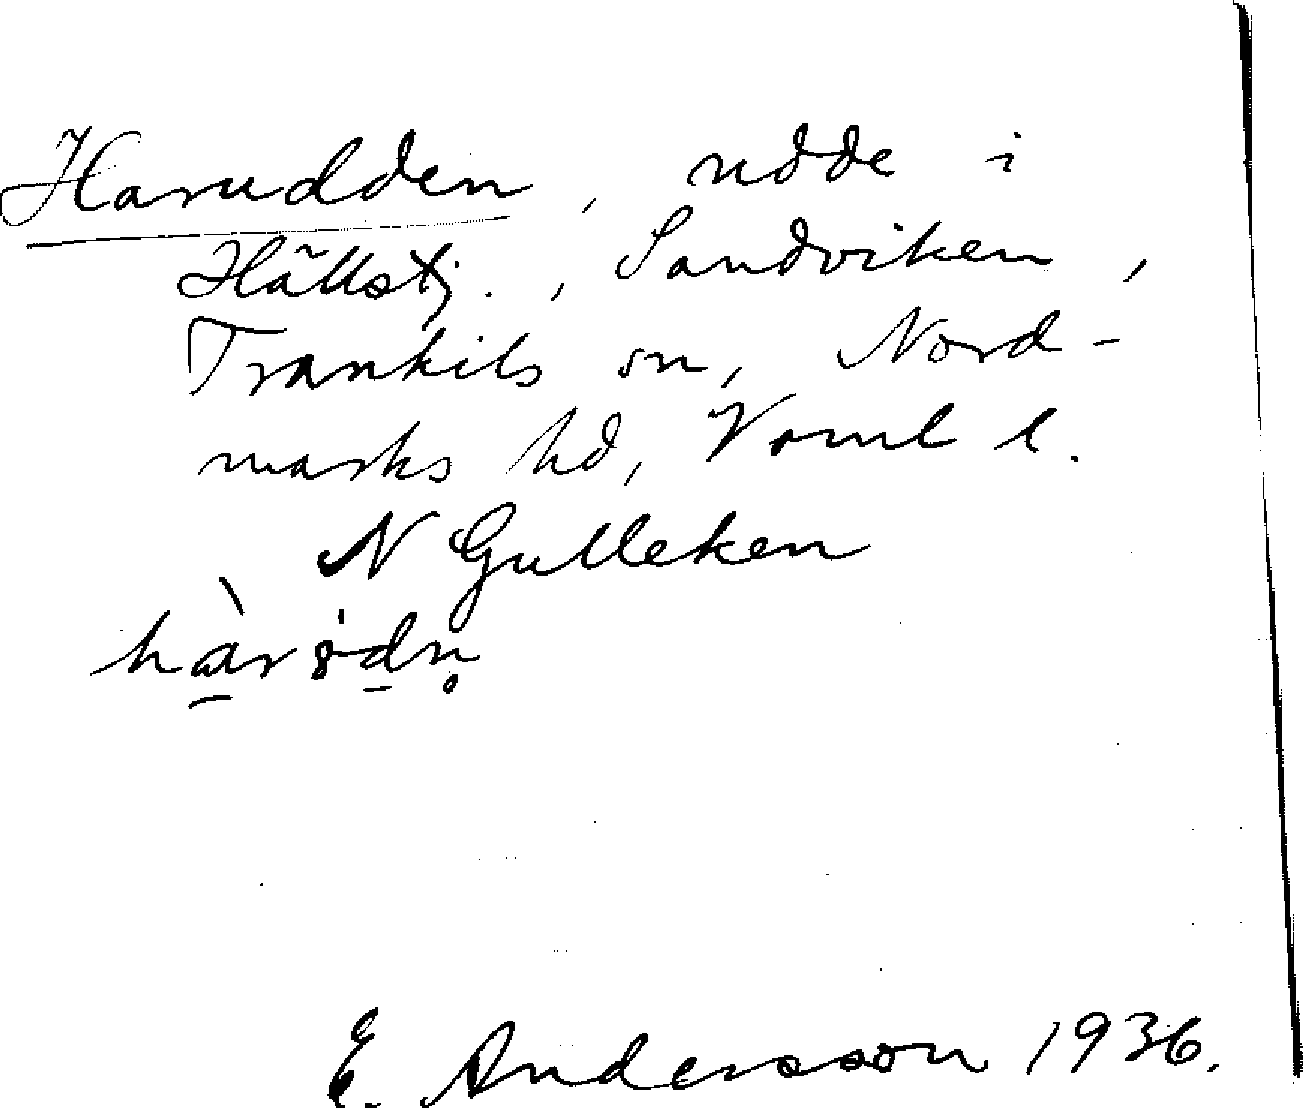 Harudden, udde i
Hällstj., Sandviken,
Trankils sn, Nord-
marks hd, Värml l.
N Gulleken
E. Andersson 1936.